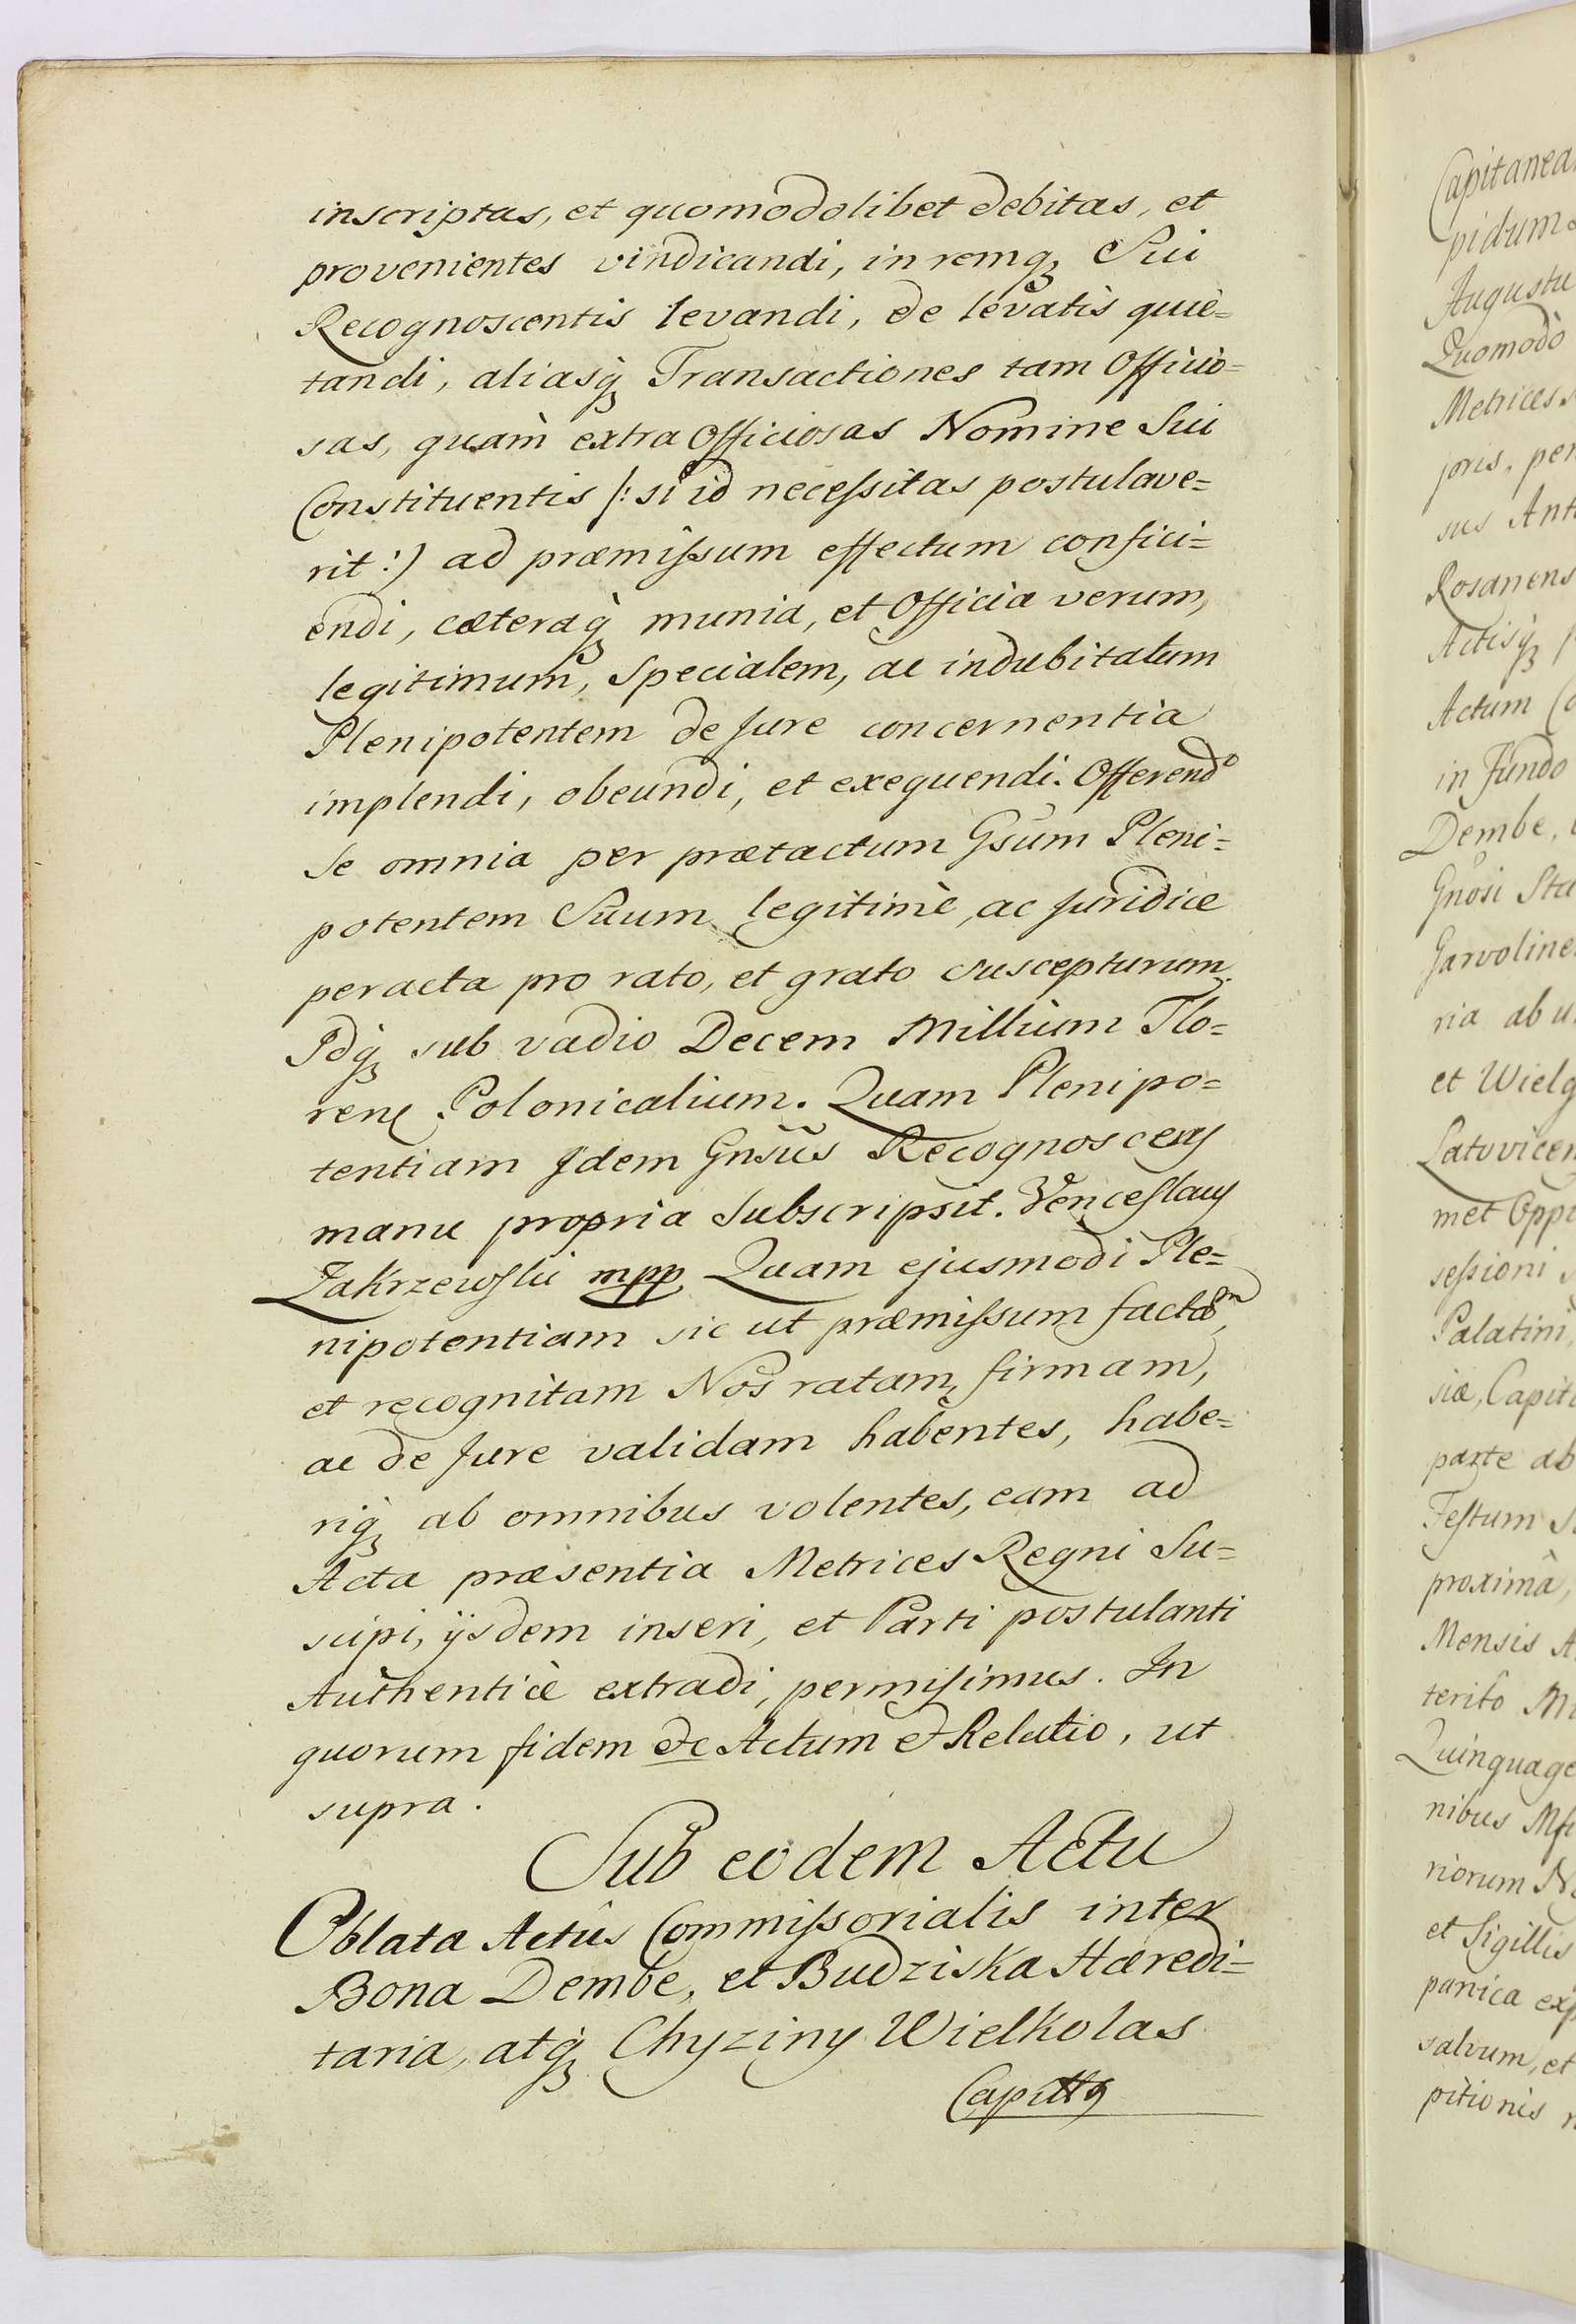 inscriptas, et quomodolibet debitas, et
provenientes vindicandi, in remq́ꝫ Sui
Recognoscentis levandi, de levatis quie=
tandi, aliasq́ꝫ Transactiones tam Officio=
sas, quàm extra Officiosas Nomine Sui
Constituentis /: si id necessitas postulave=
rit :) ad præmissum effectum confici=
endi, cæteraq́ꝫ munia, et Officia verum,
legitimum, Specialem, ac indubitatum
Plenipotentem de Jure concernentia
implendi, obeundi, et exequendi. Offerendo
Se omnia per prætactum Gsum Pleni=
potentem Suum legitimè, ac Juridicè
peracta pro rato, et grato suscepturum.
Idq́ꝫ sub vadio Decem Millium Flo=
ren Polonicalium. Quam Plenipo=
tentiam Idem Gnsus Recognoscens
manu propria Subscripsit. Venceslaus
Zakrzewski mpp Quam ejusmodi Ple=
nipotentiam sic ut præmissum factam,
et recognitam Nos ratam, firmam,
ac de Jure validam habentes, habe=
riq́ꝫ ab omnibus volentes, eam ad
Acta præsentia Metrices Regni Su=
scipi, ijsdem inseri, et Parti postulanti
Authenticè extradi, permisimus. In
quorum fidem &c Actum & Relatio, ut
supra.
Sub eodem Actu
Oblata Actûs Commissorialis inter
Bona Dembe, et Budziska Hæredi=
taria, atq́ꝫ Chyziny Wielkolas
Capit
Capitanea
pidum
Augustu
Quomodò
Metrices
joris, per
sus Ant
Rosanens
Actisq́ꝫ
Actum
in Fundo
Dembe,
Gnosi Sta
Garvoline
ria ab u
et Wielg
Latovicen
met Oppi
sessioni
Palatini,
siæ, Capit
parte ab
Festum
proximâ,
Mensis A
terito M
Quinquage
nibus
riorum
et Sigillis
panica exp
salvum, et
pitionis